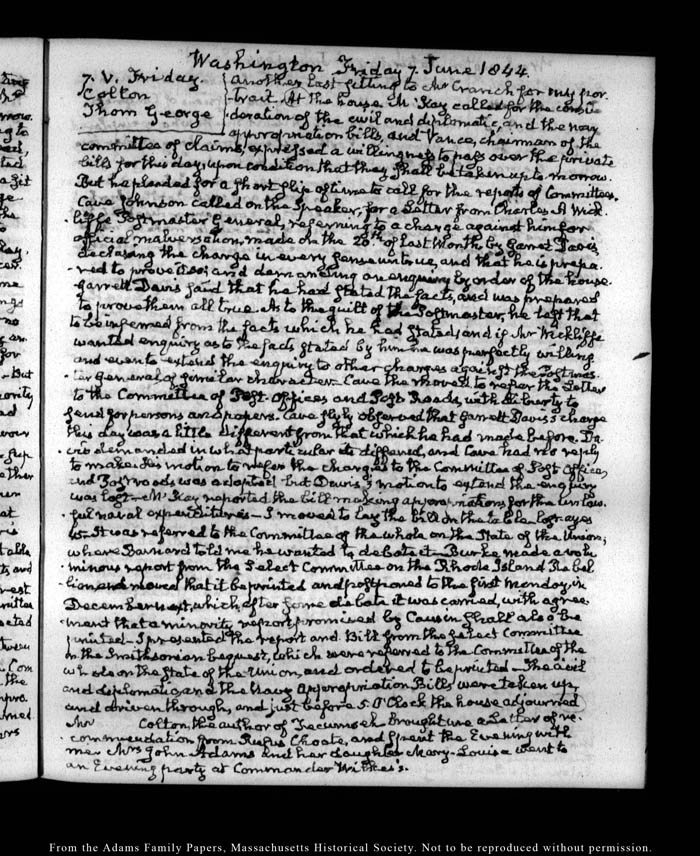 Washington Friday 7. June 1844.
7. V. Friday.
Colton
Thom George
Another last sitting to Mr Cranch for my por-
-trait. At the house McKay called for the consi-
-deration of the civil and diplomatic, and the navy
appropriation bills, and Vance, chairman of the
committee of claims, expressed a willingness to pass over the private
bills for this day, upon condition that they shall be taken up to morrow.
But he pleaded for a short slip of time to call for the reports of Committees.
Cave Johnson called on the Speaker, for a Letter from Charles A Wick-
-liffe Postmaster General, referring to a charge against him for
official malversation, made on the 28th of last Month, by Garret Davis,
declaring the charge in every sense untrue, and that he is prepa-
-red to prove it so; and demanding an enquiry by order of the house.
Garrett Davis said that he had stated the facts, and was prepared
to prove them all true. As to the guilt of the Postmaster, he left that
to be inferred from the facts which he had stated, and if Mr Wickliffe
wanted enquiry as to the facts stated by him he was perfectly willing
and even to extend the enquiry to other charges against the Postmas-
-ter General of similar character. Cave the moved to refer the Letter
to the Committee of Post offices and Post Roads, with liberty to
send for persons and papers. Cave slyly observed that Garrett Davis's charge
this day was a little different from that which he had made before. Da-
-vis demanded in what particular it differed, and Cave had no reply
to make. His motion to refer the charges to the Committee of Post offices,
and Post roads was adopted but Davis's motion to extend the enquiry
was lost. McKay reported the bill making appropriations for the unlaw-
-ful naval expenditures — I moved to lay the bill on the table lost, ayes
It was referred to the Committee of the whole on the State of the Union;
where Barnard told me he wanted to debate it — Burke made a volu-
-minous report from the Select Committee on the Rhode Island Rebel-
-lion and moved that it be printed and postponed to the first Monday, in
December next, which after some debate it was carried, with agree-
-ment that a minority report promised by Causin shall also be
printed — I presented the report and Bill from the select Committee
on the Smithsonian bequest, which were referred to the Committee of the
whole on the State of the Union, and ordered to be printed — The civil
and diplomatic, and the Navy Appropriation Bills were taken up,
and driven through, and just before 5. O'Clock the house adjourned
Mr Colton, the author of Tecumseh brought me a Letter of re-
-commendation from Rufus Choate, and spent the Evening with
me. Mrs John Adams and her daughter Mary-Louisa went to
an Evening party at Commander Wilkes's.
From the Adams Family Papers, Massachusetts Historical Society. Not to be reproduced without permission.